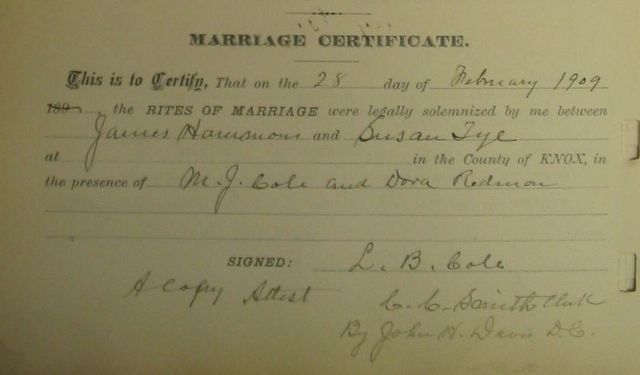 MARRIAGE CERTIFICATE.
This is to Certify, That on the 28 day of February 1909
189 , the RITES OF MARRIAGE were legally solemnized by me between
James Hammons and Susan Tye
at in the County of KNOX, in
the presence of M. J. Cole and Dora Redmon
SIGNED: L. B. Cole
A Copy Attest C. C. Smith Clerk
By John H. Davis D.C.